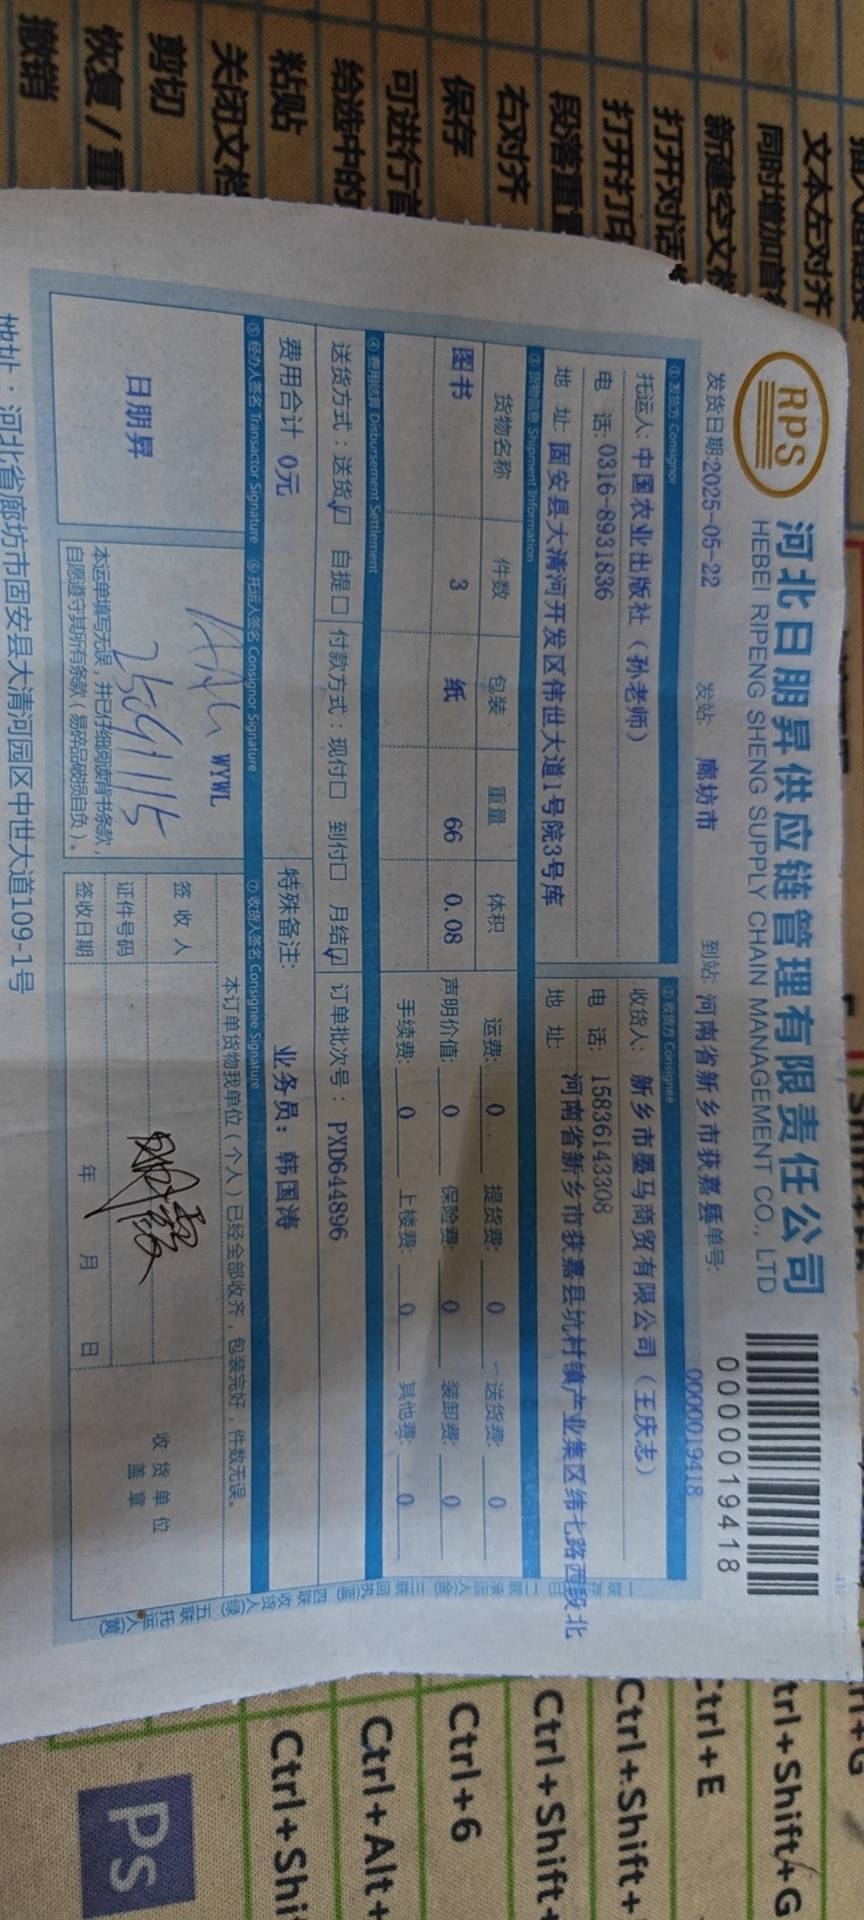 RPS
河北日朋昇供应链管理有限责任公司
HEBEI RIPENG SHENG SUPPLY CHAIN MANAGEMENT CO., LTD
0000019418
发货日期:2025-05-22 发站: 廊坊市 到站: 河南省新乡市获嘉县 单号: 0000019418
① 发货方 Consignor
托运人: 中国农业出版社（孙老师）
电 话: 0316-8931836
地 址: 固安县大清河开发区伟世大道1号院3号库
② 收货方 Consignee
收货人: 新乡市墨马商贸有限公司（王庆志）
电 话: 15836143308
地 址: 河南省新乡市获嘉县坑村镇产业集区纬七路西段北
③ 货物信息 Shipment Information
货物名称 件数 包装 重量 体积
图书 3 纸 66 0.08
运费: 0 提货费: 0 送货费: 0
声明价值: 0 保险费: 0 装卸费: 0
手续费: 0 上楼费: 0 其他费: 0
④ 费用结算 Disbursement Settlement
送货方式：送货☑ 自提☐ 付款方式：现付☐ 到付☐ 月结☑ 订单批次号： PXD644896
费用合计 0元 特殊备注: 业务员: 韩国涛
⑤ 经办人签名 Transactor Signature
⑥ 托运人签名 Consignor Signature
⑦ 收货人签名 Consignee Signature
日朋昇
WYWL
本运单填写无误，并已仔细阅读背书条款，
自愿遵守其所有条款（易碎品破损自负）。
本订单货物我单位（个人）已经全部收齐，包装完好，件数无误。
签 收 人
证件号码
签收日期 年 月 日
收货单位
盖章
地址：河北省廊坊市固安县大清河园区中世大道109-1号
文本左对齐
新建空文档
打开对话
打开打印
段落重
右对齐
保存
可进行首
给选中的
粘贴
关闭文档
剪切
恢复 / 重
撤销
Ctrl+Shift+G
Ctrl+E
Ctrl+Shift+
Ctrl+Shift+
Ctrl+6
Ctrl+Alt+
Ctrl+Shi
Ps